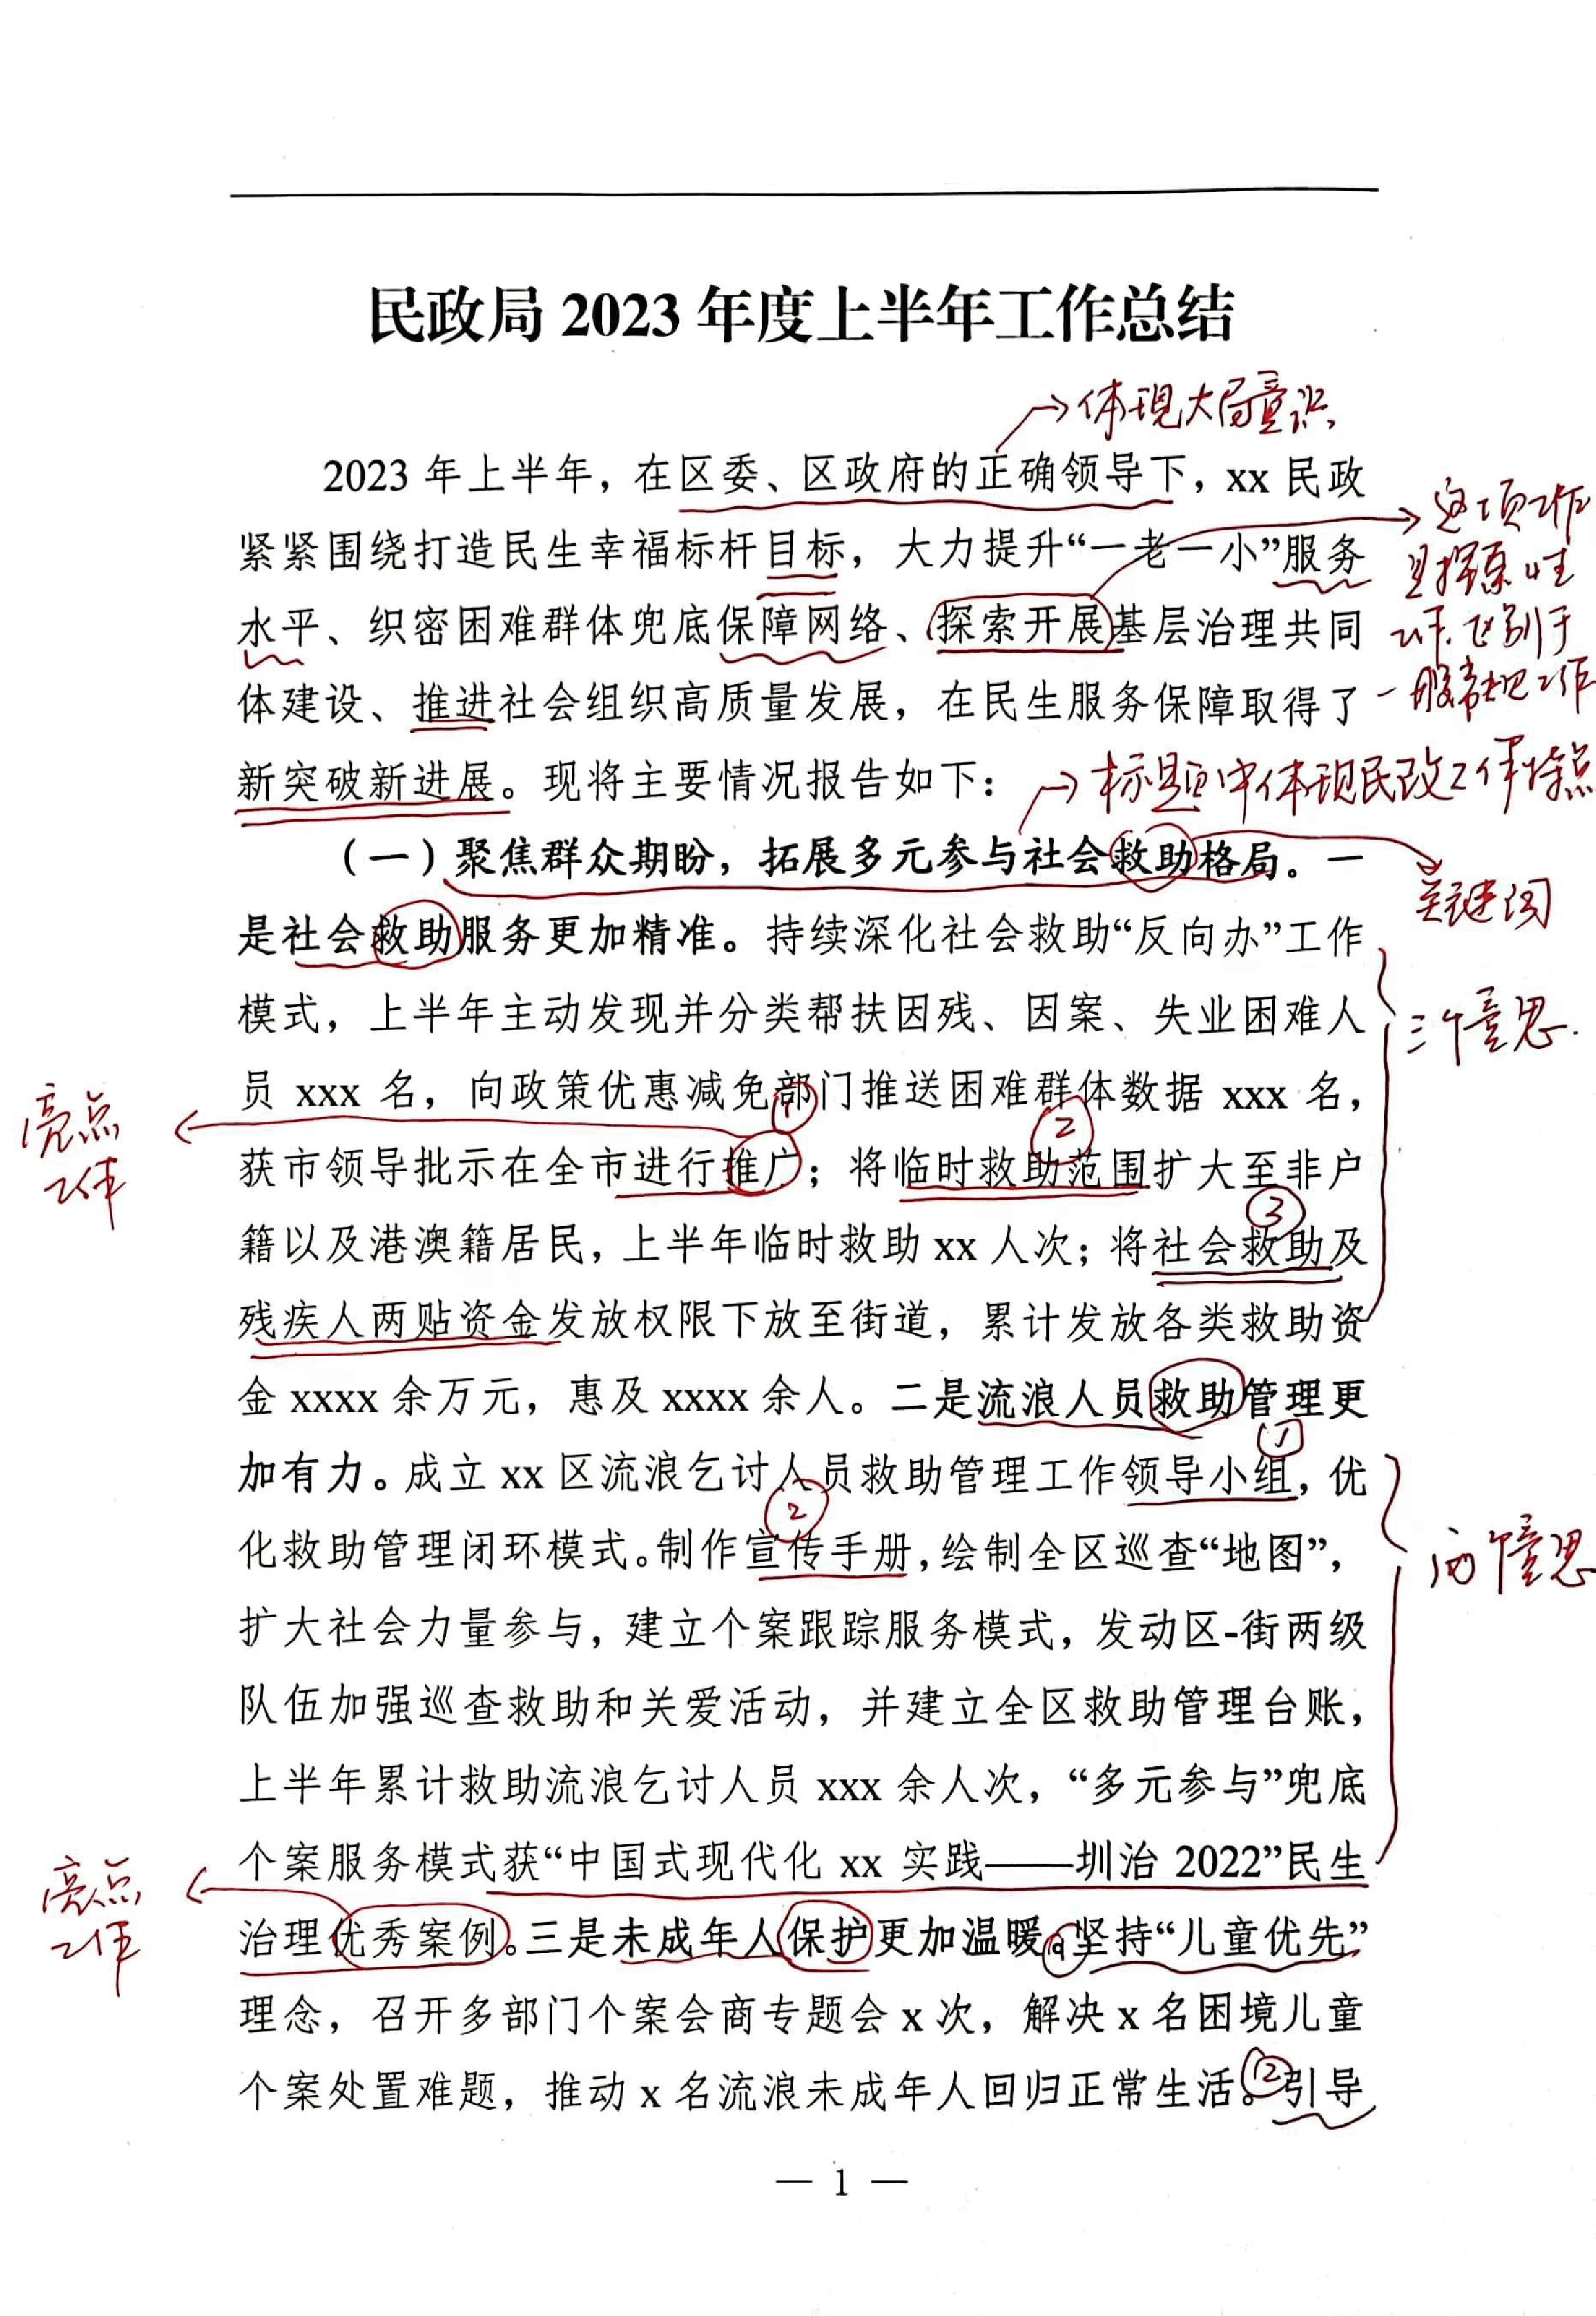 民政局 2023 年度上半年工作总结
体现大局意识
2023 年上半年，在区委、区政府的正确领导下，xx 民政
这项工作
紧紧围绕打造民生幸福标杆目标，大力提升“一老一小”服务
是探索性
水平、织密困难群体兜底保障网络、探索开展基层治理共同
工作，区别于
体建设、推进社会组织高质量发展，在民生服务保障取得了
一般常规工作
新突破新进展。现将主要情况报告如下：
标题中体现民政工作特点
（一）聚焦群众期盼，拓展多元参与社会救助格局。一
关键词
是社会救助服务更加精准。持续深化社会救助“反向办”工作
模式，上半年主动发现并分类帮扶因残、因案、失业困难人
三个意思.
员 xxx 名，向政策优惠减免部门推送困难群体数据 xxx 名，
亮点
工作
①
②
获市领导批示在全市进行推广；将临时救助范围扩大至非户
③
籍以及港澳籍居民，上半年临时救助 xx 人次；将社会救助及
残疾人两贴资金发放权限下放至街道，累计发放各类救助资
金 xxxx 余万元，惠及 xxxx 余人。二是流浪人员救助管理更
①
加有力。成立 xx 区流浪乞讨人员救助管理工作领导小组，优
②
化救助管理闭环模式。制作宣传手册，绘制全区巡查“地图”，
两个意思
扩大社会力量参与，建立个案跟踪服务模式，发动区-街两级
队伍加强巡查救助和关爱活动，并建立全区救助管理台账，
上半年累计救助流浪乞讨人员 xxx 余人次，“多元参与”兜底
个案服务模式获“中国式现代化 xx 实践——圳治 2022”民生
亮点
工作
治理优秀案例。三是未成年人保护更加温暖。①坚持“儿童优先”
理念，召开多部门个案会商专题会 x 次，解决 x 名困境儿童
个案处置难题，推动 x 名流浪未成年人回归正常生活。②引导
— 1 —